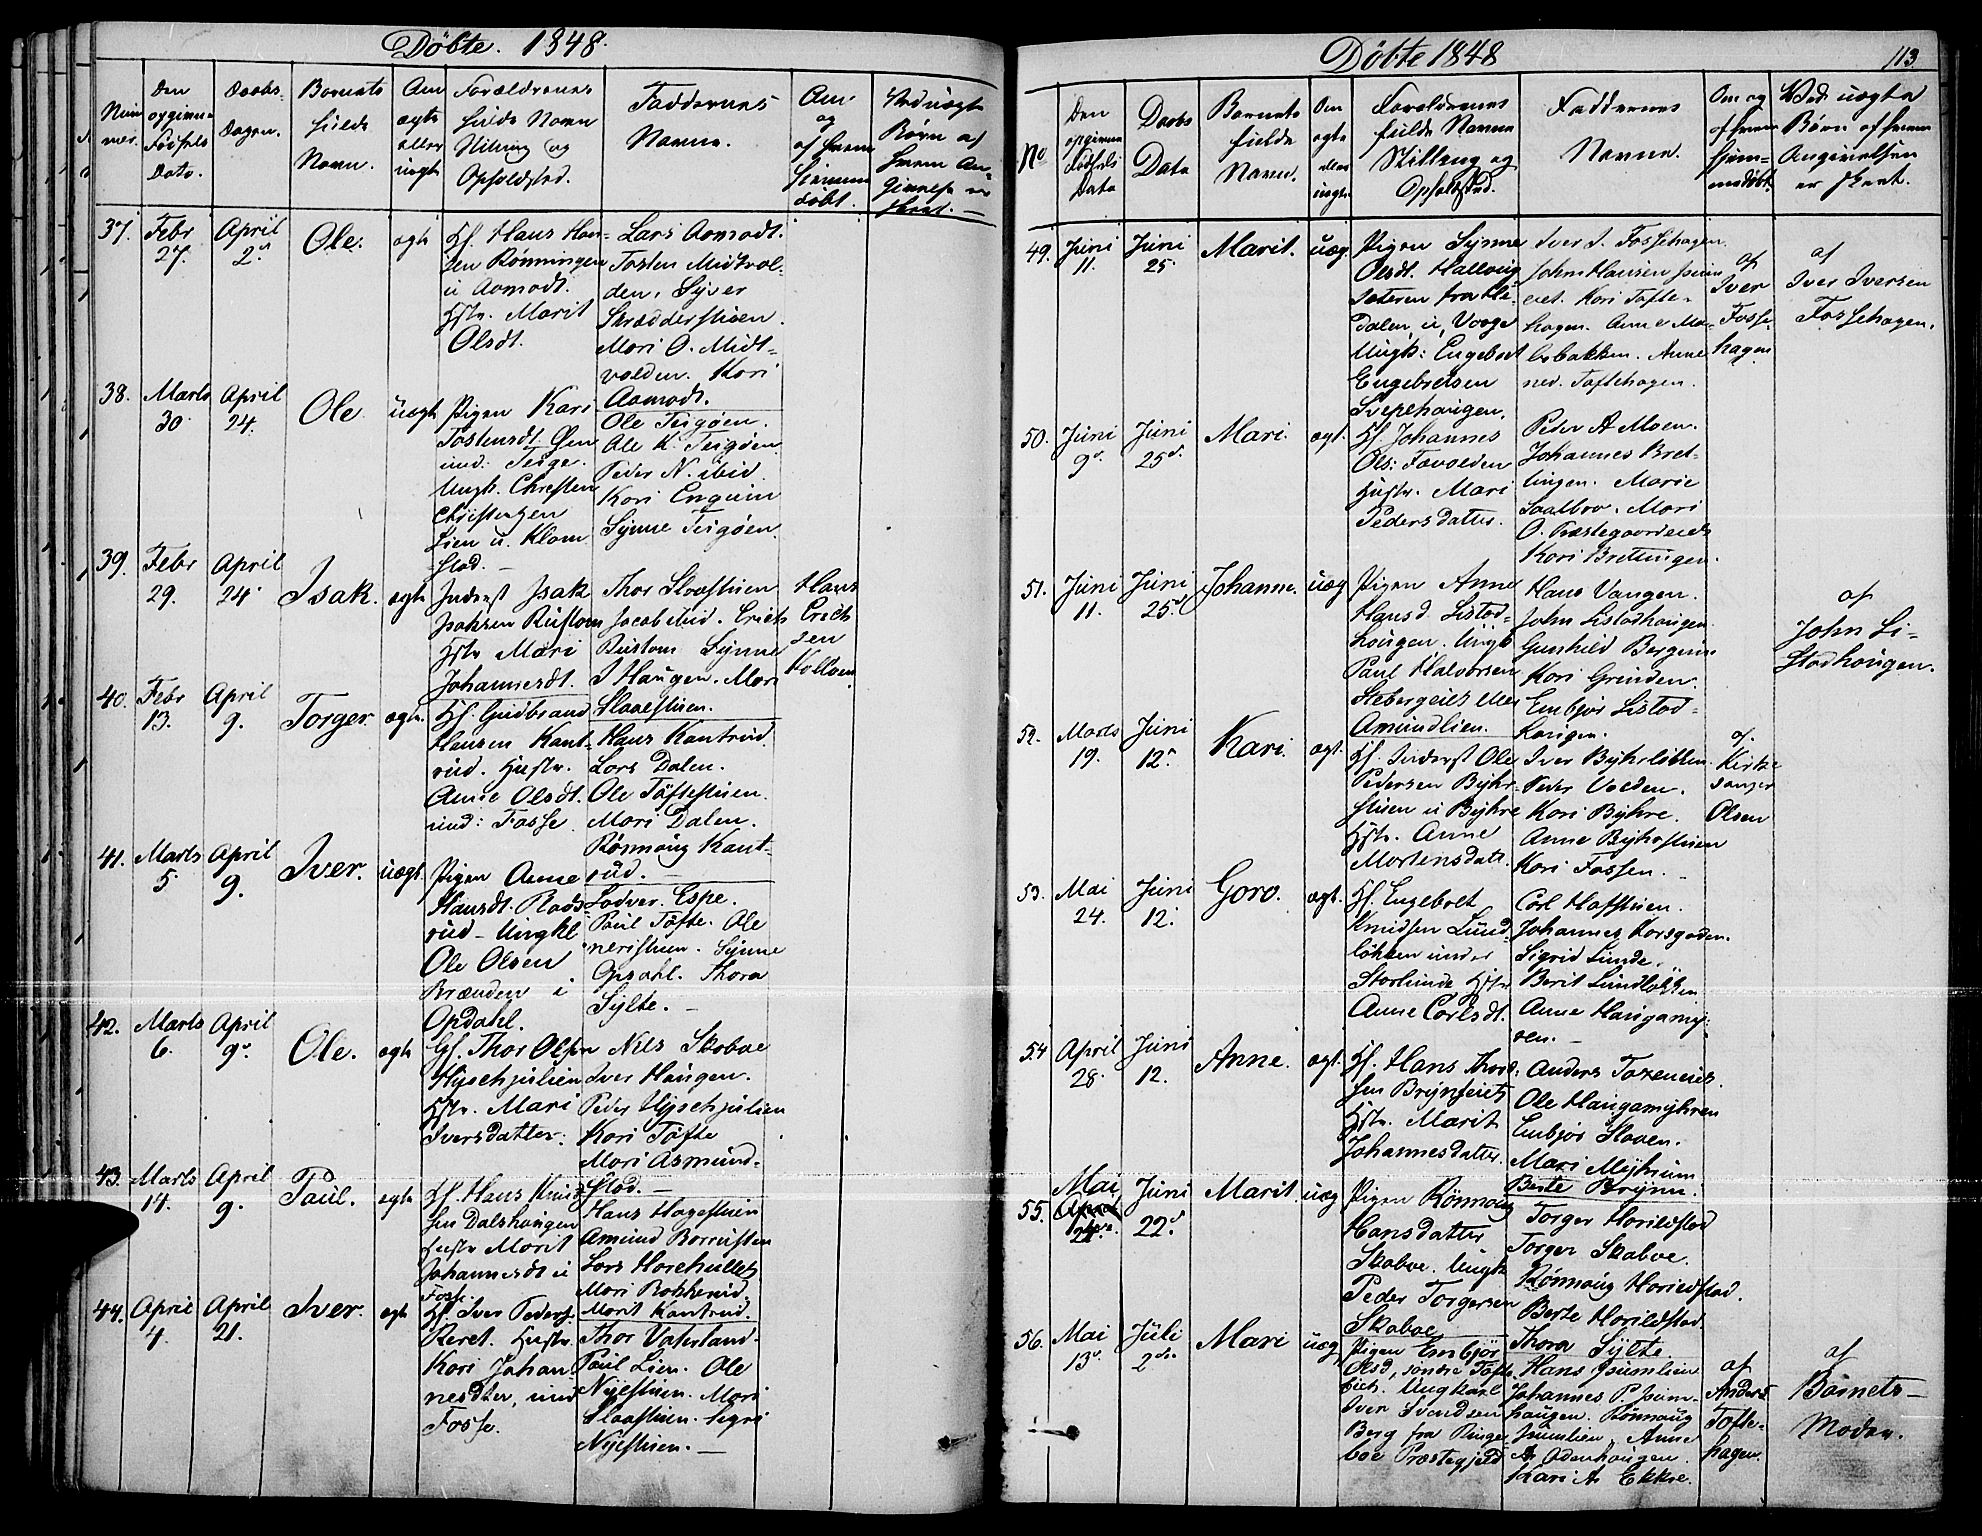 Döbte. 1848.
Num
mer.
Den
opgivne
Födsels
Dato.
Daabs
Dagen.
Barnets
fulde
Navn.
Om
ægte
eller
uægte
Forældrenes
fulde Navn
Stilling og
Opholdsted.
Faddernes
Navne.
Om
og
af hvem
hjemme
döbt.
Ved uægte
Börn af
hvem An-
givelse er
skeet.
37. Febr 27. April 2. Ole. ægte
Hans Han-
sen Rönningen
u Aamodt.
Hstr. Marit
Olsdt.
Lars Aamodt.
Tosten Midtvol-
den. Syver
Skrædderstuen.
Mari O. Midt-
volden. Kari
Aamodt.
38. Marts 30. April 24. Ole. uægte
Pigen Kari
Tostensdt. Öen
und: Teige.
Ungk. Christen
Christensen
Lien u. Klom
stad.
Ole Teigöen.
Ole K. Teigöen
Peder N. ibid.
Kari Enguin
Synne Teigöen.
39. Febr 29. April 24. Isak. ægte
Inderst Isak
Isaksen Rustom
Hstr Mari
Johannesdt.
Thor Slaastuen
Jacob ibid. Erich
Rustom Synne
I Haugen. Mari
Slaaestuen.
Hans
Erich
sen
Kolloen
40. Febr 13. April 9. Torger. ægte
Hf. Gudbrand
Hansen Kant-
rud. Hustr.
Anne Olsdt.
und: Fosse.
Hans Kantrud.
Lars Dalen.
Ole Töftestuen.
Mari Dalen.
Rönnaug Kant-
rud.
41. Marts 5. April 9. Iver. uægt
Pigen Anne
Hansdt. Rads-
rud - Ungkl
Ole Olsen
Brænden i
Opdahl.
Sadver. Espe.
Paul Töfte. Ole
neristuen. Synne
Opsahl. Thora
Sylte.
42. Marts 6. April 9. Ole. ægte
Gf. Thor Olsen
Hyschjulien
Hstr. Mari
Iversdatter.
Nils Skaboe
Iver Haugen.
Peder Hyschjulien
Kari Töfte
Mari Asmund-
stad.
43. Marts 14. April 9. Paul. ægte
Hf. Hans Knud
sen Dalshaugen
Hustr Marit
Johannesdt u
Fosse.
Hans Hagestuen
Amund Borrusten
Lars Horehullet
Mari Bakkerud.
Marit Kantrud.
44. April 4. April 21. Iver. ægte
Hf. Iver Peders.
Reret. Hustr.
Kari Johan
nesdter, und
Fosse.
Thor Vaterland.
Paul Lien. Ole
Nyestuen. Mari
Slaastuen. Segri
Nyestuen.
Döbte 1848
113.
No
Den
opgivne
Födsels
Data
Daabs
Data
Barnets
fulde
Navn.
Om
ægte
eller
uægte
Forældrenes
fulde Navne
Stilling og
Opholdsted.
Faddernes
Navne.
Om og
af hvem
hjem-
medöbt.
Ved uægte
Börn af hvem
Angivelsen
er skeet.
49. Juni 11. Juni 25 Marit. uæg.
Pigen Synne
Olsdt. Hallvig
Sæteren fra He-
dalen, u, Vaage
Ungk: Engebret
Engebretsen
Svepehaugen.
Iver I. Fossehagen.
John Hansen
eiet. Kari Töfte-
hagen. Anne Ma-
lebakken. Anne
ned. Töftehagen.
af
Iver
Fosse-
hagen
af
Iver Iversen
Fossehagen.
50. Juni 9. Juni 25. Mari. ægt.
Hf. Johannes
Ols: Favolden
Hustr. Mari
Pedersdatter.
Peder A Moen.
Johannes Bret-
tingen. Marie
Saalbro. Mari
O. Præstegaardseiet
Kari Brettingen.
51. Juni 11. Juni 25. Johanne. uæg
Pigen Anne
Hansd. Listad-
haugen. Ungk
Paul Halvorsen
Stebergeiet eller
Amundlien.
Hans Vangen.
John Listadhaugen
Gunhild Bergum
Kari Grinden.
Embjör Listad-
haugen.
af
John Li-
stadhaugen.
52. Marts 19. Juni 12. Kari. ægt.
Hf. Inderst Ole
Pedersen Byhr-
stuen u Byhre
Hstr. Anne
Mortensdatt.
Iver Byhrlökken.
Peder Volden.
Kari Byhre.
Anne Byhrstuen
Kari Fossen.
af
Kirke
sanger
Olsen
53. Mai 24. Juni 12. Goro. ægt.
Hf. Engebret
Knudsen Lund-
lökken under
Storlunde Hstr
Anne Carlsdt.
Carl Hafstuen.
Johannes Korsgaden.
Sigrid Lunde.
Berit Lundlökken
Anne Haugamy-
ren.
54 April 28. Juni 12. Anne. ægt.
Hf. Hans Thord-
sen Brynseiet
Hstr. Marit
Johannesdatter.
Anders Toxeneiet.
Ole Haugamyhren
Embjör Slaaen.
Mari Myhrum
Berte Brynn.
55. Mai 24. Juni 22. Marit. uæg
Pigen Rönnaug
Hansdatter
Skaboe. Ungk
Peder Torgersen
Skaboe
Torger Horildstad
Torger Skaboe.
Rönnaug Horildstad.
Berte Horildstad.
Thora Sylte.
56. Mai 13. Juli 2. Mari uæg
Pigen Embjör
Olsd, söndre Töfte
eiet. Ungkarl
Iver Svendsen
Berg fra Ringe
boe Præstegjeld
Hans
Johannes P.
haugen. Rönnaug
Anne
A. Odenhaugen.
Kari A. Ekkre.
af
Anders
Töfte-
hagen.
af
Barnets
Moder.